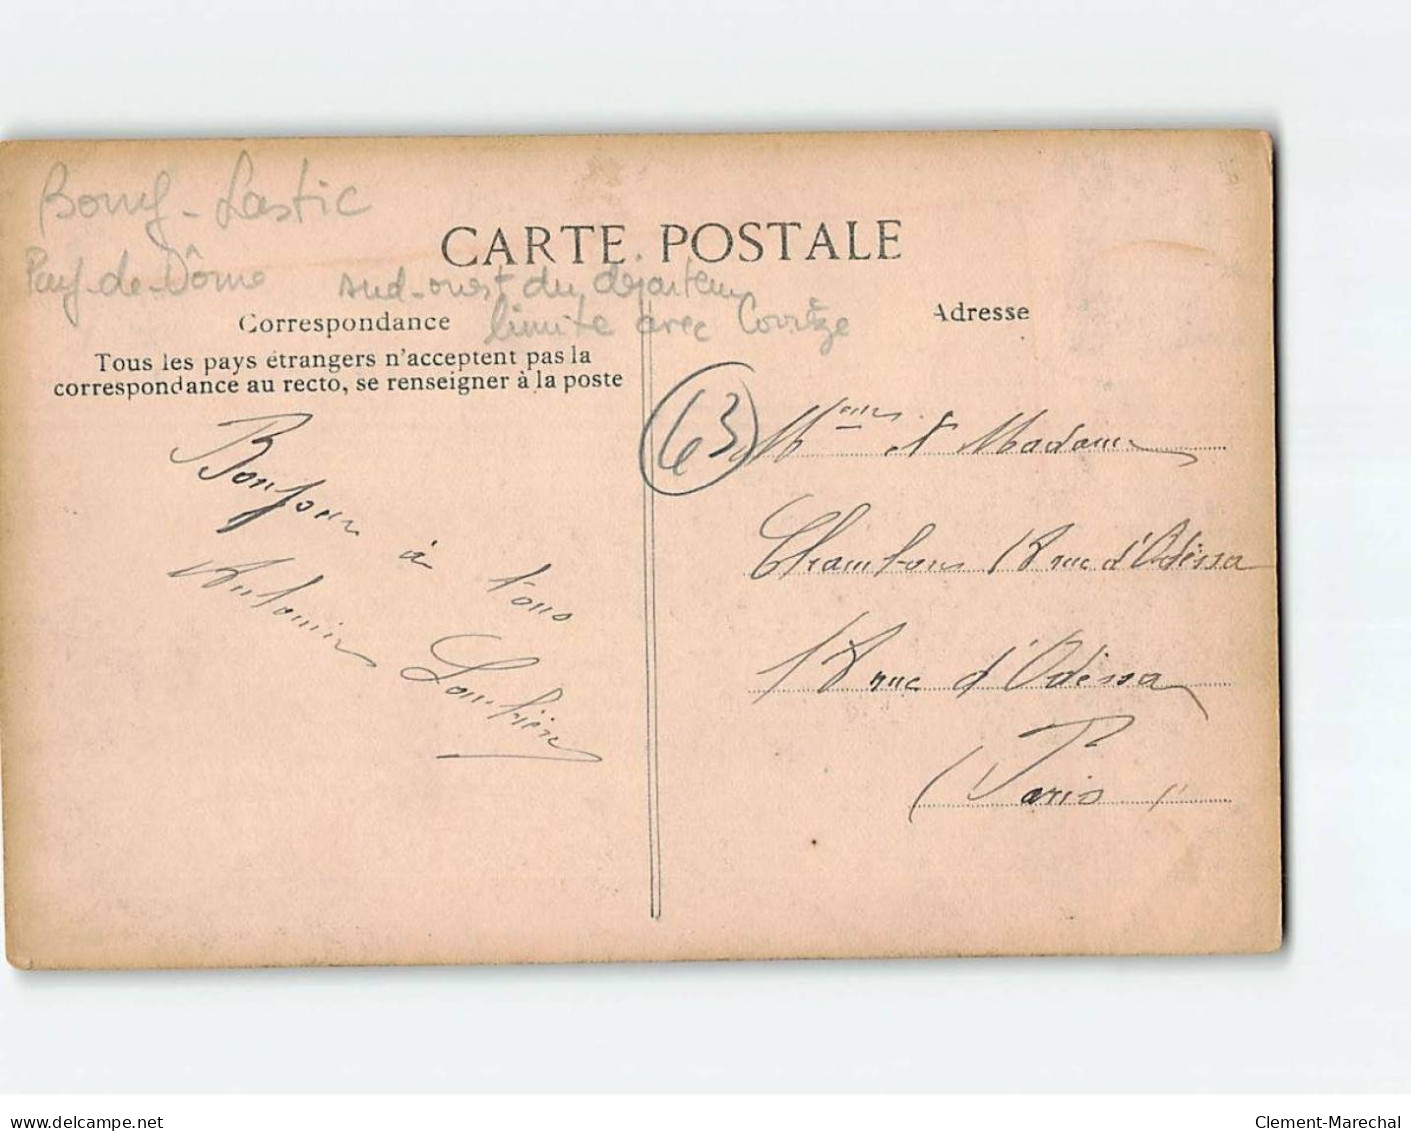 Bourg-Lastic
Puy-de-Dôme
sud-ouest du départem
limite avec Corrèze
CARTE POSTALE
Correspondance
Tous les pays étrangers n'acceptent pas la
correspondance au recto, se renseigner à la poste
Bonjour à tous
Antonin
Adresse
63
et Madame
Chambon 18 rue d'Odessa
18 rue d'Odessa
Paris
www.delcampe.net
Clement-Marechal